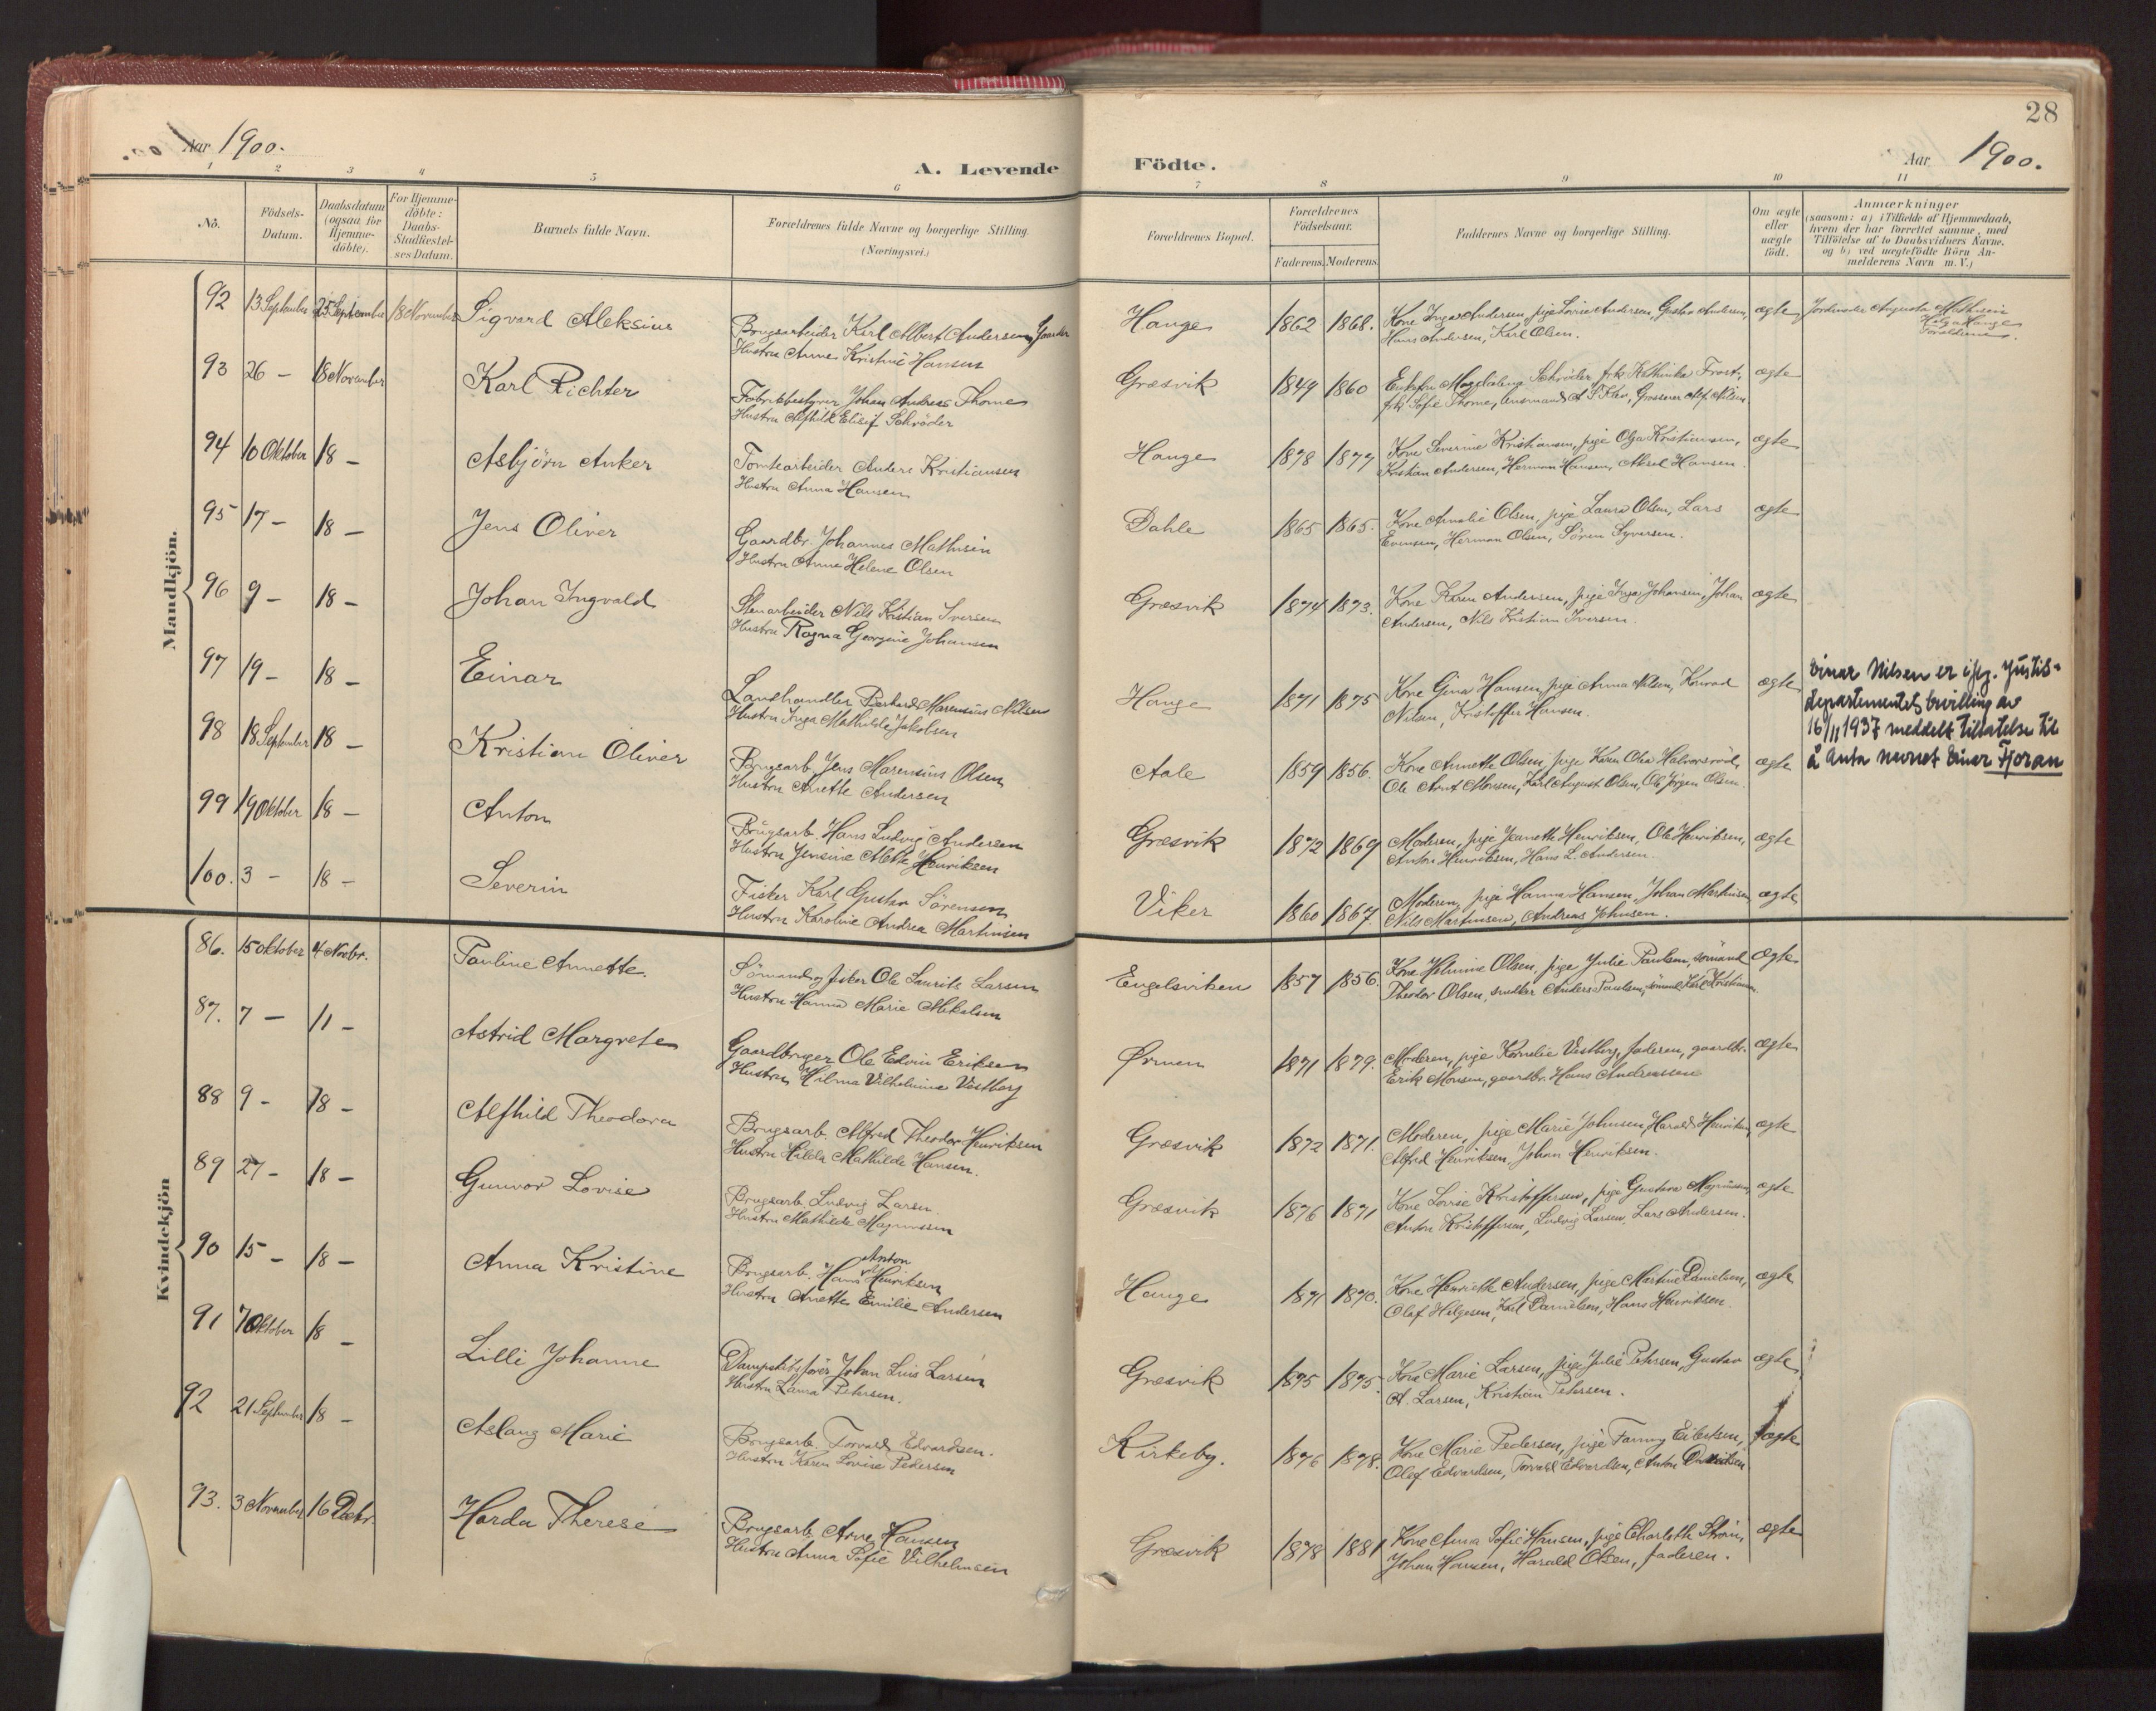 28
Aar 1900.
A. Levende Födte.
Aar 1900.
1 2 3 4 5 6 7 8 9 10 11
No.
Födsels-Datum.
Daabsdatum (ogsaa for Hjemme-döbte).
For Hjemme-döbte: Daabs-Stadfestel-ses Datum.
Barnets fulde Navn.
Forældrenes fulde Navne og borgerlige Stilling. (Næringsvei.)
Forældrenes Bopæl.
Forældrenes Födselsaar.
Faderens. Moderens.
Faddernes Navne og borgerlige Stilling.
Om ægte eller uægte födt.
Anmærkninger
(saasom: a) i Tilfælde af Hjemmedaab,
hvem der har forrettet samme, med
Tilföielse af to Daabsvidners Navne.
og b) ved uægtefödte Börn An-
melderens Navn m. V.)
Mandkjön.
92 13 September 25 September 18 November Sigvard Aleksius
Brugsarbeider Karl Albert Andersen
Hustru Anne Kristine Hansen
Hauge 1862 1868.
Kone Inga Andersen, pige Lovise Andersen, Gustav Andersen,
Hans Andersen, Karl Olsen.
ægte
Jordmoder Augusta Mathisen
Helga Hauge
Foraldrene.
93 26 – 18 November Karl Richter
Fabrikbestyrer Johan Andreas Thorne
Hustru Alfhild Elisif Schröder
Græsvik 1849 1860
Enkefru Magdalena Schröder frk. Kathinka Frost,
frk. Sofie Thorne,
ægte
94 10 Oktober 18 – Asbjörn Anker
Tomtearbeider Anders Kristiansen
Hustru Anna Hansen
Hauge 1878 1877
Kone Severine Kristiansen, pige Olga Kristiansen,
Kristian Andersen, Herman Hansen, Aksel Hansen.
ægte
95 17 – 18 – Jens Oliver
Gaardbr. Johannes Mathisen
Hustru Anne Helene Olsen
Dahle 1865 1865.
Kone Amalie Olsen, pige Laura Olsen, Lars
Evensen, Herman Olsen, Sören Syversen.
ægte
96 9 – 18 – Johan Ingvald
Stenarbeider Nils Kristian Iversen
Hustru Ragna Georgine Johansen
Græsvik 1874 1873.
Kone Karen Andersen, pige Inga Johansen, Johan
Andersen, Nils Kristian Iversen.
ægte
97 19 – 18 – Einar
Landhandler Marensius Nilsen
Hustru Inga Mathilde Jakobsen
Hauge 1871 1875
Kone Gina Hansen, pige Anna Nilsen, Konrad
Nilsen, Kristoffer Hansen.
ægte
Einar Nilsen er ifög. Justis-
departementets bevilling av
16/11 1937 meddelt tillatelse til
å anta navnet Einar Fjoran
98 18 September 18 – Kristian Oliver
Brugsarb. Jens Marensius Olsen
Hustru Anette Andersen
Aale 1859 1856.
Kone Annette Olsen, pige Karen Olea Halvorsröd,
Ole Arnt Monsen, Karl August Olsen, Ole Jörgen Olsen.
ægte
99 19 Oktober 18 – Anton
Brugsarb. Hans Ludvig Andersen
Hustru Jensine Alette Henriksen
Græsvik 1872 1869
Moderen, pige Jeanette Henriksen, Ole Henriksen,
Anton Henriksen, Hans L. Andersen.
ægte
100. 3 – 18 – Severin
Fisker Karl Gustav Sörensen
Hustru Karoline Andrea Martinsen
Viker 1860 1867.
Moderen, pige Hanna Hansen, Johan Martinsen
Nils Martinsen, Andreas Johnsen.
ægte
Kvindekjön
86. 15 Oktober 4 Novbr. Pauline Annette.
Sömand og fisker Ole Lauritz Larsen
Hustru Hanna Marie Mikelsen
Engelsviken 1857 1856.
Kone Helmine Olsen, pige Julie Paulsen, sömand
Theodor Olsen, snedker Anders Paulsen, sömand Karl Kristiansen.
ægte
87. 7 – 11 – Astrid Margrete
Gaardbruger Ole Edvin Eriksen
Hustru Hilma Vilhelmine Vestberg
Ørmen 1871 1879.
Moderen, pige Kornelie Vestberg, faderen, gaardbr.
Erik Monsen, gaardbr. Hans Andreassen
ægte
88 9 – 18 – Alfhild Theodora
Brugsarb. Alfred Theodor Henriksen
Hustru Hilda Mathilde Hansen.
Græsvik 1872 1871.
Moderen, pige Marie Johnsen, Harald Henriksen,
Alfred Henriksen, Johan Henriksen.
ægte
89 27 – 18 – Gunvor Lovise
Brugsarb. Ludvig Larsen.
Hustru Mathilde Magnussen
Græsvik 1876 1871
Kone Lovise Kristoffersen, pige Gustava Magnussen,
Anton Kristoffersen, Ludvig Larsen, Lars Andersen.
ægte
90 15 – 18 – Anna Kristine
Brugsarb. Hans Anton Henriksen
Hustru Anette Emilie Andersen
Hauge 1871 1870.
Kone Henriette Andersen, pige Martine Danielsen,
Olaf Helgesen, Karl Danielsen, Hans Henriksen.
ægte
91 7 Oktober 18 – Lilli Johanne
Dampskibsförer Johan Luis Larsen
Hustru Laura Petersen.
Græsvik 1875 1875.
Kone Marie Larsen, pige Julie Petersen, Gustav
A. Larsen, Kristian Petersen.
ægte
92 21 September 18 – Aslaug Marie
Brugsarb. Torvald Edvardsen.
Hustru Karen Lovise Pedersen
Kirkeby. 1876 1878.
Kone Marie Pedersen, pige Fanny Eilertsen,
Olaf Edvardsen, Torvald Edvardsen, Anton
ægte
93. 3 November 16 Decbr. Harda Therese
Brugsarb. Arne Hansen
Hustru Anna Sofie Vilhelmsen
Græsvik 1878 1881
Kone Anna Sofie Hansen, pige Charlotte Ström,
Johan Hansen, Harald Olsen, faderen.
ægte